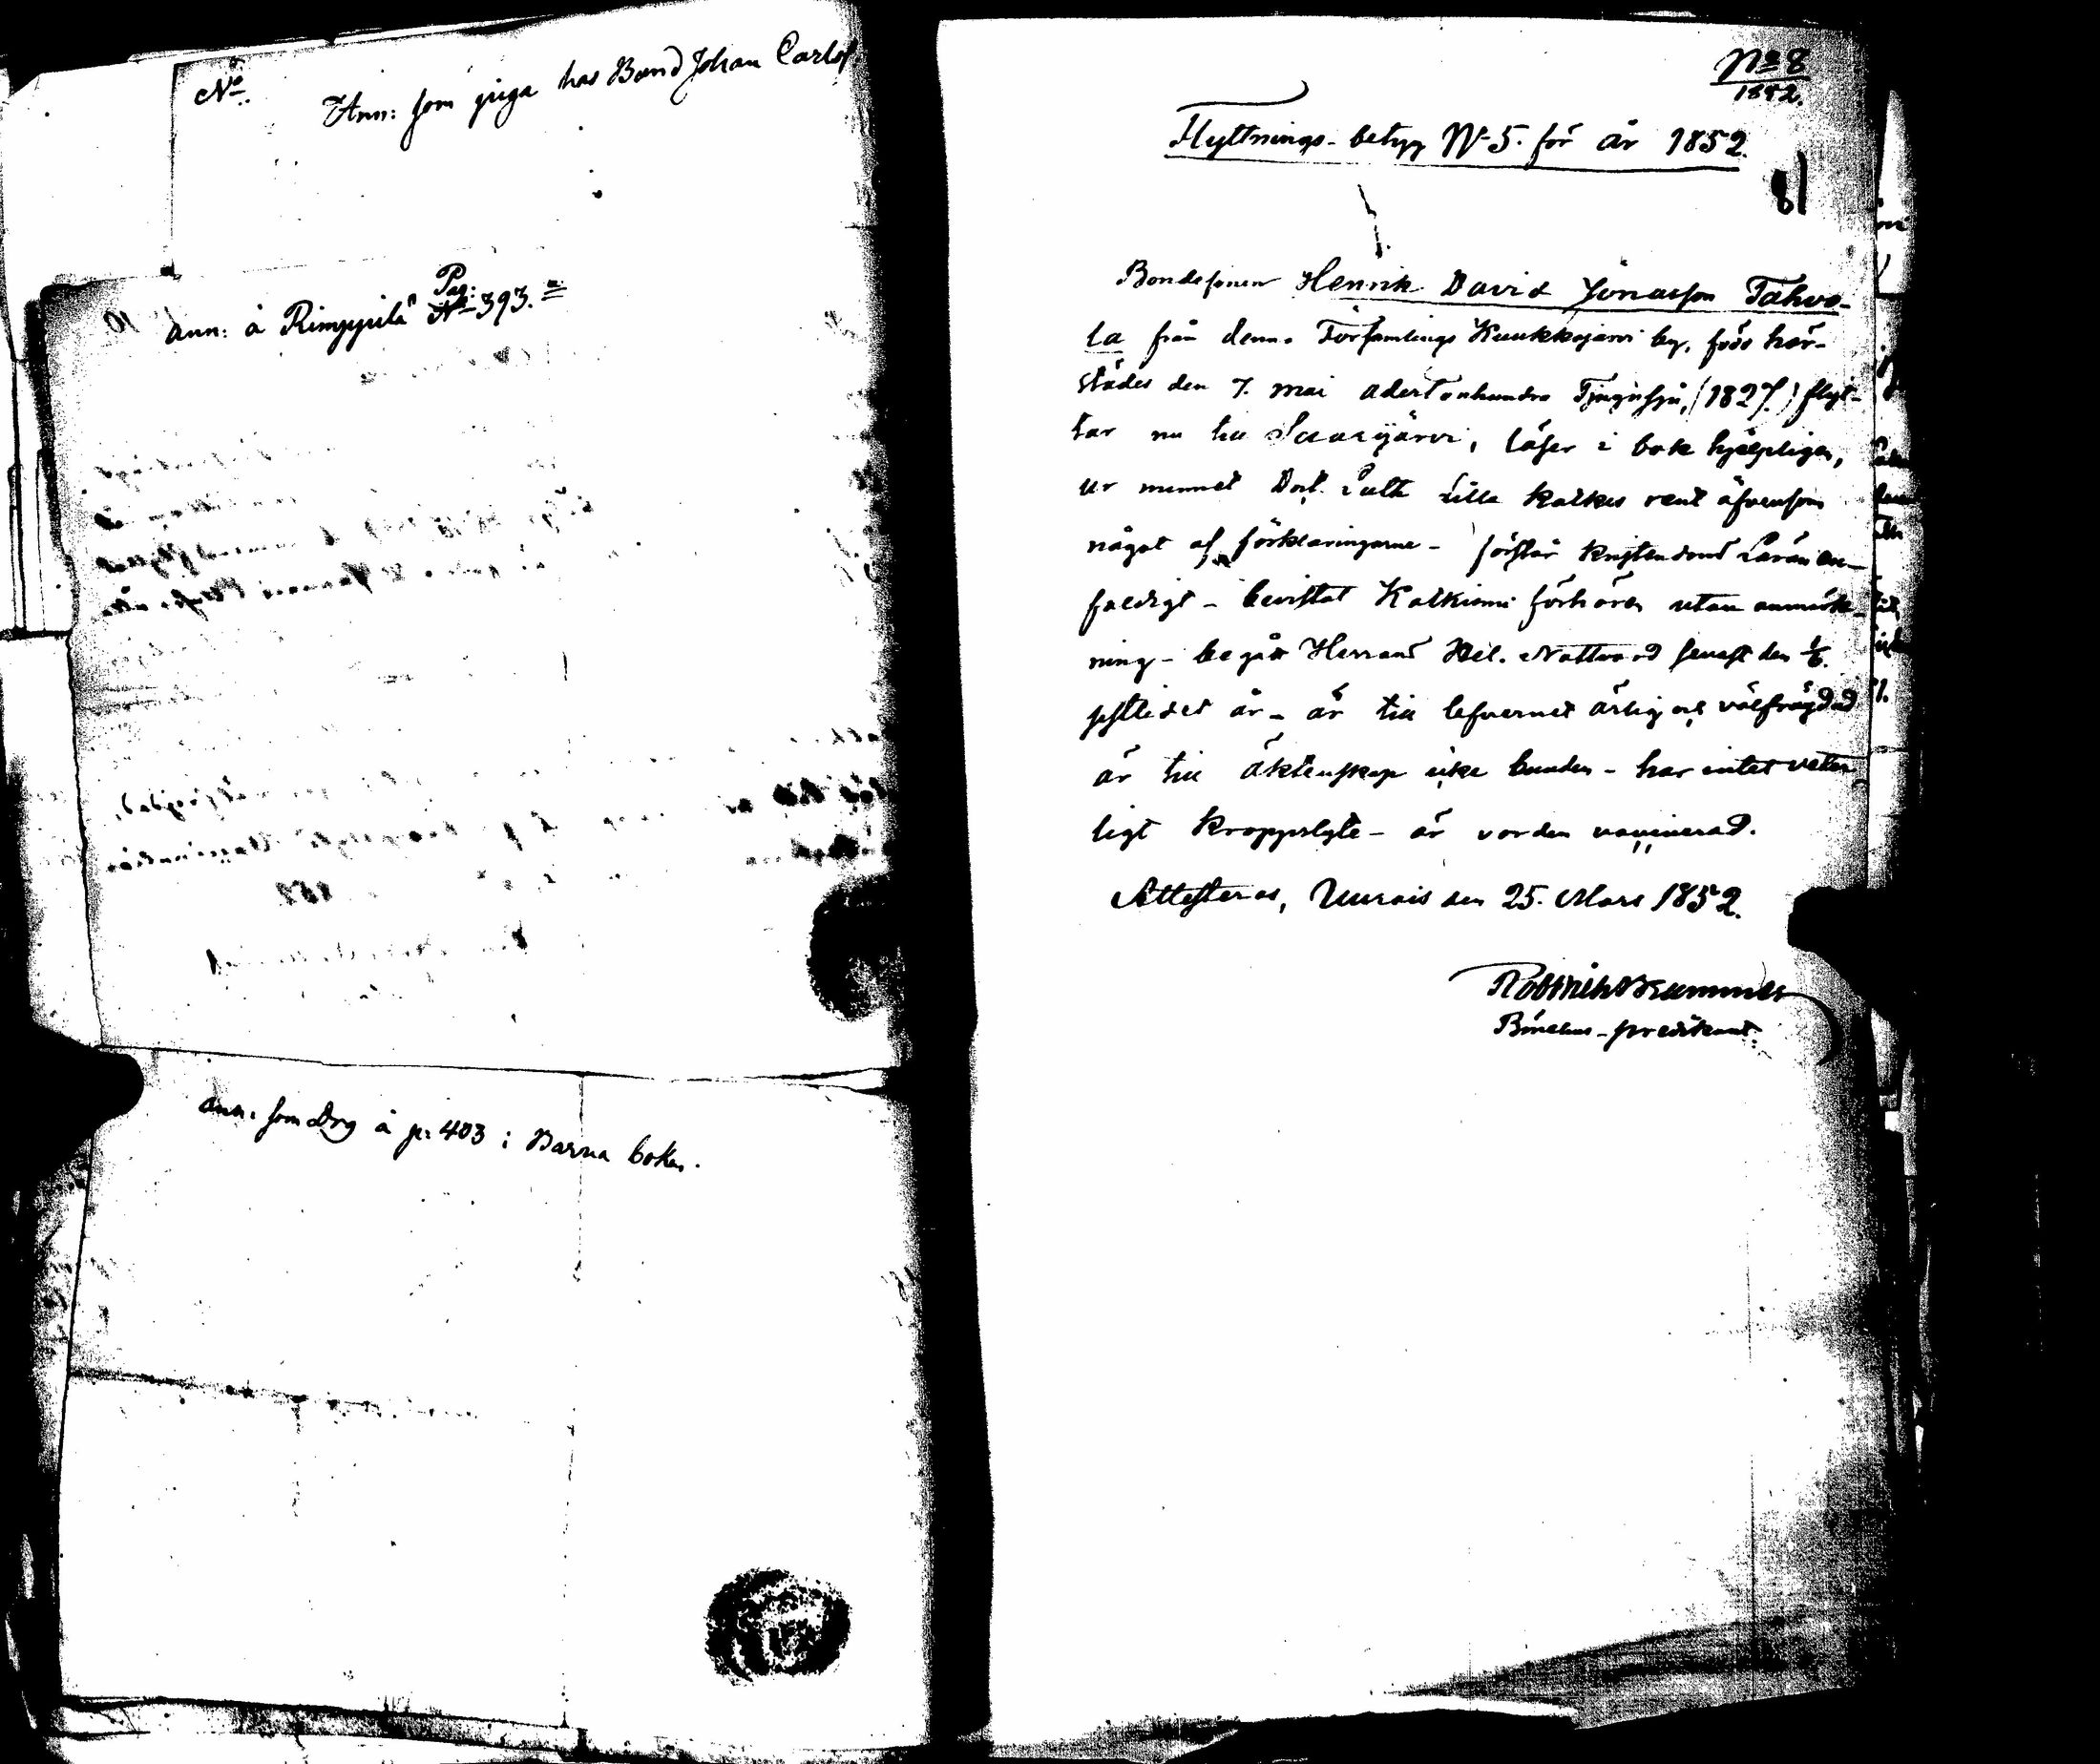 No
Ann: som piga hos Bond Johan Carls
Pag:
ann: å Rimppilä No 393.
ann. som Drg å p: 403 i Barna boken.
No 8
1852.
Flyttnings-betyg No 5. för år 1852.
81
Bondesonen Henrik David Jonasson Tahvo-
la från denna Församlings Kuukkajärvi by, född här-
städes den 7. Mai adertonhundra Tjugusju, (1827.) flyt-
tar nu till Saarijärvi, läser i bok hjelpligen,
ur minnet Doct. Luth. Lilla Katkes rent äfvensom
något af förklaringarne - förstår kristendoms Läran en-
faldigt - bevistat Katkismi förhören utan anmärk-
ning - begått Herrans Hel. Nattvard senast den 1/6.
sistledet år - är till lefvernet ärlig och välfrägdad
är till äktenskap icke bunden - har intet veter-
ligt kroppslyte - är vorden vaccinerad.
Attesteras, Uurais den 25. Mars 1852.
Bönehus-predikant.